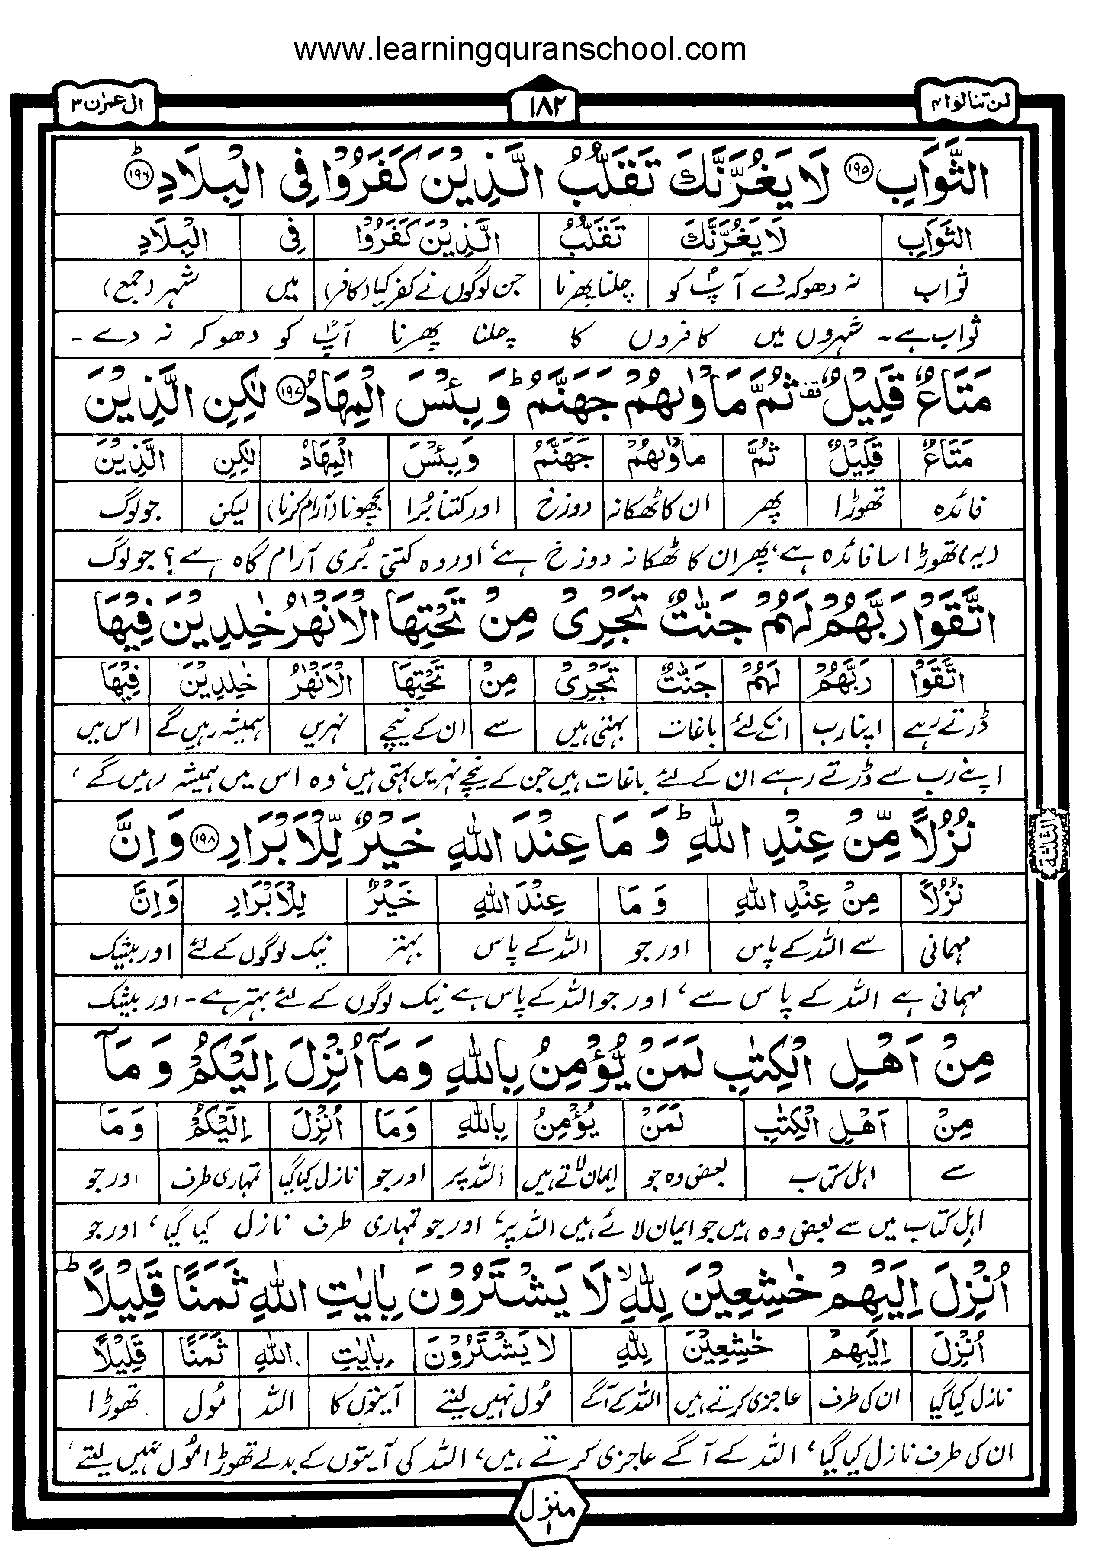 www.learningquranschool.com
لن تنالوا ۴ ۱۸۲ اٰل عمرٰن ۳
الثَّوَابِ ۝۱۹۵ لَا يَغُرَّنَّكَ تَقَلُّبُ الَّذِيْنَ كَفَرُوْا فِي الْبِلَادِ ۝ؕ۱۹۶
الثَّوَابِ لَا يَغُرَّنَّكَ تَقَلُّبُ الَّذِيْنَ كَفَرُوْا فِي الْبِلَادِ
ثواب نہ دھوکہ دے آپؐ کو چلنا پھرنا جن لوگوں نے کفر کیا (کافر) میں شہر (جمع)
ثواب ہے۔ شہروں میں کافروں کا چلنا پھرنا آپؐ کو دھوکہ نہ دے۔
مَتَاعٌ قَلِيْلٌ ۟قف ثُمَّ مَاْوٰىهُمْ جَهَنَّمُ ؕ وَبِئْسَ الْمِهَادُ ۝۱۹۷ لٰكِنِ الَّذِيْنَ
مَتَاعٌ قَلِيْلٌ ثُمَّ مَاْوٰىهُمْ جَهَنَّمُ وَبِئْسَ الْمِهَادُ لٰكِنِ الَّذِيْنَ
فائدہ تھوڑا پھر ان کا ٹھکانہ دوزخ اور کتنا بُرا بچھونا (آرام کرنا) لیکن جو لوگ
(یہ) تھوڑا سا فائدہ ہے، پھر ان کا ٹھکانہ دوزخ ہے، اور وہ کتنی بُری آرام گاہ ہے؟ جو لوگ
اتَّقَوْا رَبَّهُمْ لَهُمْ جَنّٰتٌ تَجْرِىْ مِنْ تَحْتِهَا الْاَنْهٰرُ خٰلِدِيْنَ فِيْهَا
اتَّقَوْا رَبَّهُمْ لَهُمْ جَنّٰتٌ تَجْرِىْ مِنْ تَحْتِهَا الْاَنْهٰرُ خٰلِدِيْنَ فِيْهَا
ڈرتے رہے اپنا رب انکے لئے باغات بہتی ہیں سے ان کے نیچے نہریں ہمیشہ رہیں گے اس میں
اپنے رب سے ڈرتے رہے ان کے لئے باغات ہیں جن کے نیچے نہریں بہتی ہیں، وہ اس میں ہمیشہ رہیں گے،
نُزُلًا مِّنْ عِنْدِ اللّٰهِ ؕ وَمَا عِنْدَ اللّٰهِ خَيْرٌ لِّلْاَبْرَارِ ۝۱۹۸ وَاِنَّ
نُزُلًا مِنْ عِنْدِ اللّٰهِ وَمَا عِنْدَ اللّٰهِ خَيْرٌ لِلْاَبْرَارِ وَاِنَّ
مہمانی سے اللہ کے پاس اور جو اللہ کے پاس بہتر نیک لوگوں کے لئے اور بیشک
مہمانی ہے اللہ کے پاس سے، اور جو اللہ کے پاس ہے نیک لوگوں کے لئے بہتر ہے۔ اور بیشک
الثلثة
مِنْ اَهْلِ الْكِتٰبِ لَمَنْ يُّؤْمِنُ بِاللّٰهِ وَمَاۤ اُنْزِلَ اِلَيْكُمْ وَمَاۤ
مِنْ اَهْلِ الْكِتٰبِ لَمَنْ يُؤْمِنُ بِاللّٰهِ وَمَا اُنْزِلَ اِلَيْكُمْ وَمَا
سے اہل کتاب بعض وہ جو ایمان لاتے ہیں اللہ پر اور جو نازل کیا گیا تمہاری طرف اور جو
اہل کتاب میں سے بعض وہ ہیں جو ایمان لاتے ہیں اللہ پر، اور جو تمہاری طرف نازل کیا گیا، اور جو
اُنْزِلَ اِلَيْهِمْ خٰشِعِيْنَ لِلّٰهِ ۙ لَا يَشْتَرُوْنَ بِاٰيٰتِ اللّٰهِ ثَمَنًا قَلِيْلًا ؕ
اُنْزِلَ اِلَيْهِمْ خٰشِعِيْنَ لِلّٰهِ لَا يَشْتَرُوْنَ بِاٰيٰتِ اللّٰهِ ثَمَنًا قَلِيْلًا
نازل کیا گیا ان کی طرف عاجزی کرتے ہیں اللہ کے آگے مُول نہیں لیتے آیتوں کا اللہ مُول تھوڑا
ان کی طرف نازل کیا گیا، اللہ کے آگے عاجزی کرتے ہیں، اللہ کی آیتوں کے بدلے تھوڑا مُول نہیں لیتے،
منزل ۱